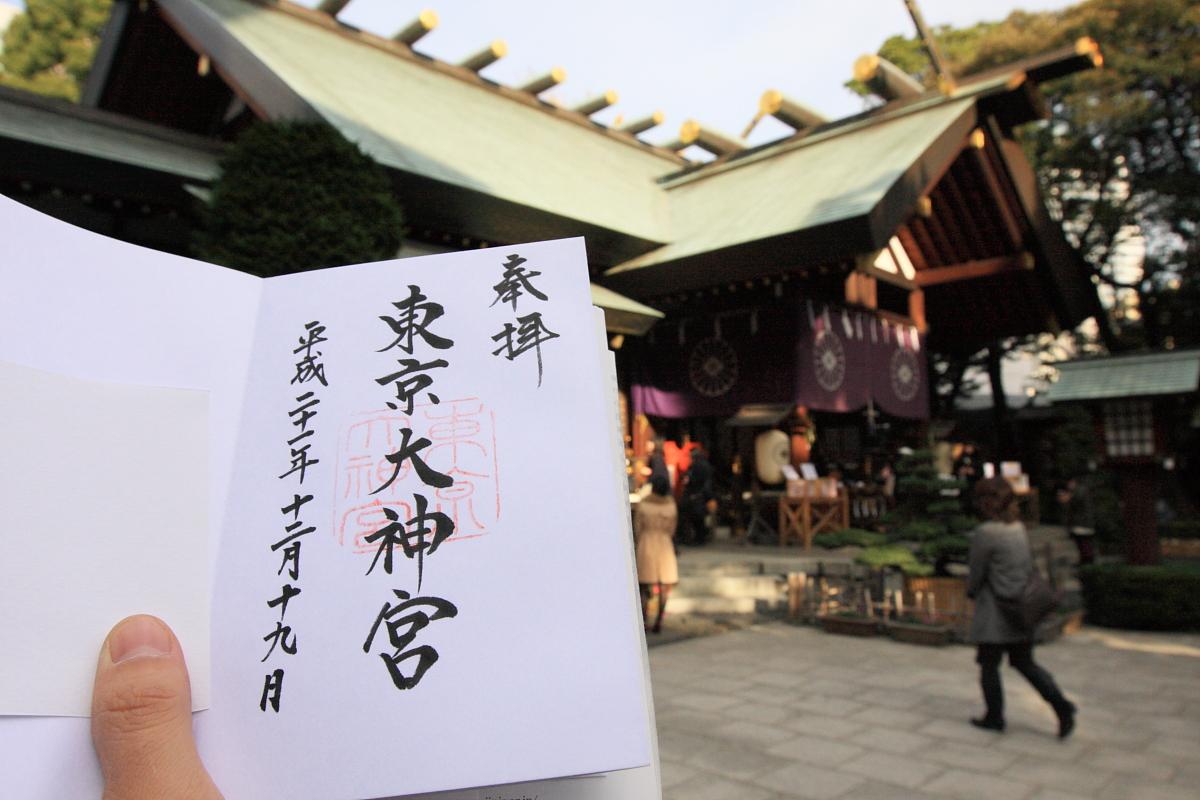 奉拝
東京大神宮
東京
大神宮
平成二十一年十二月十九日